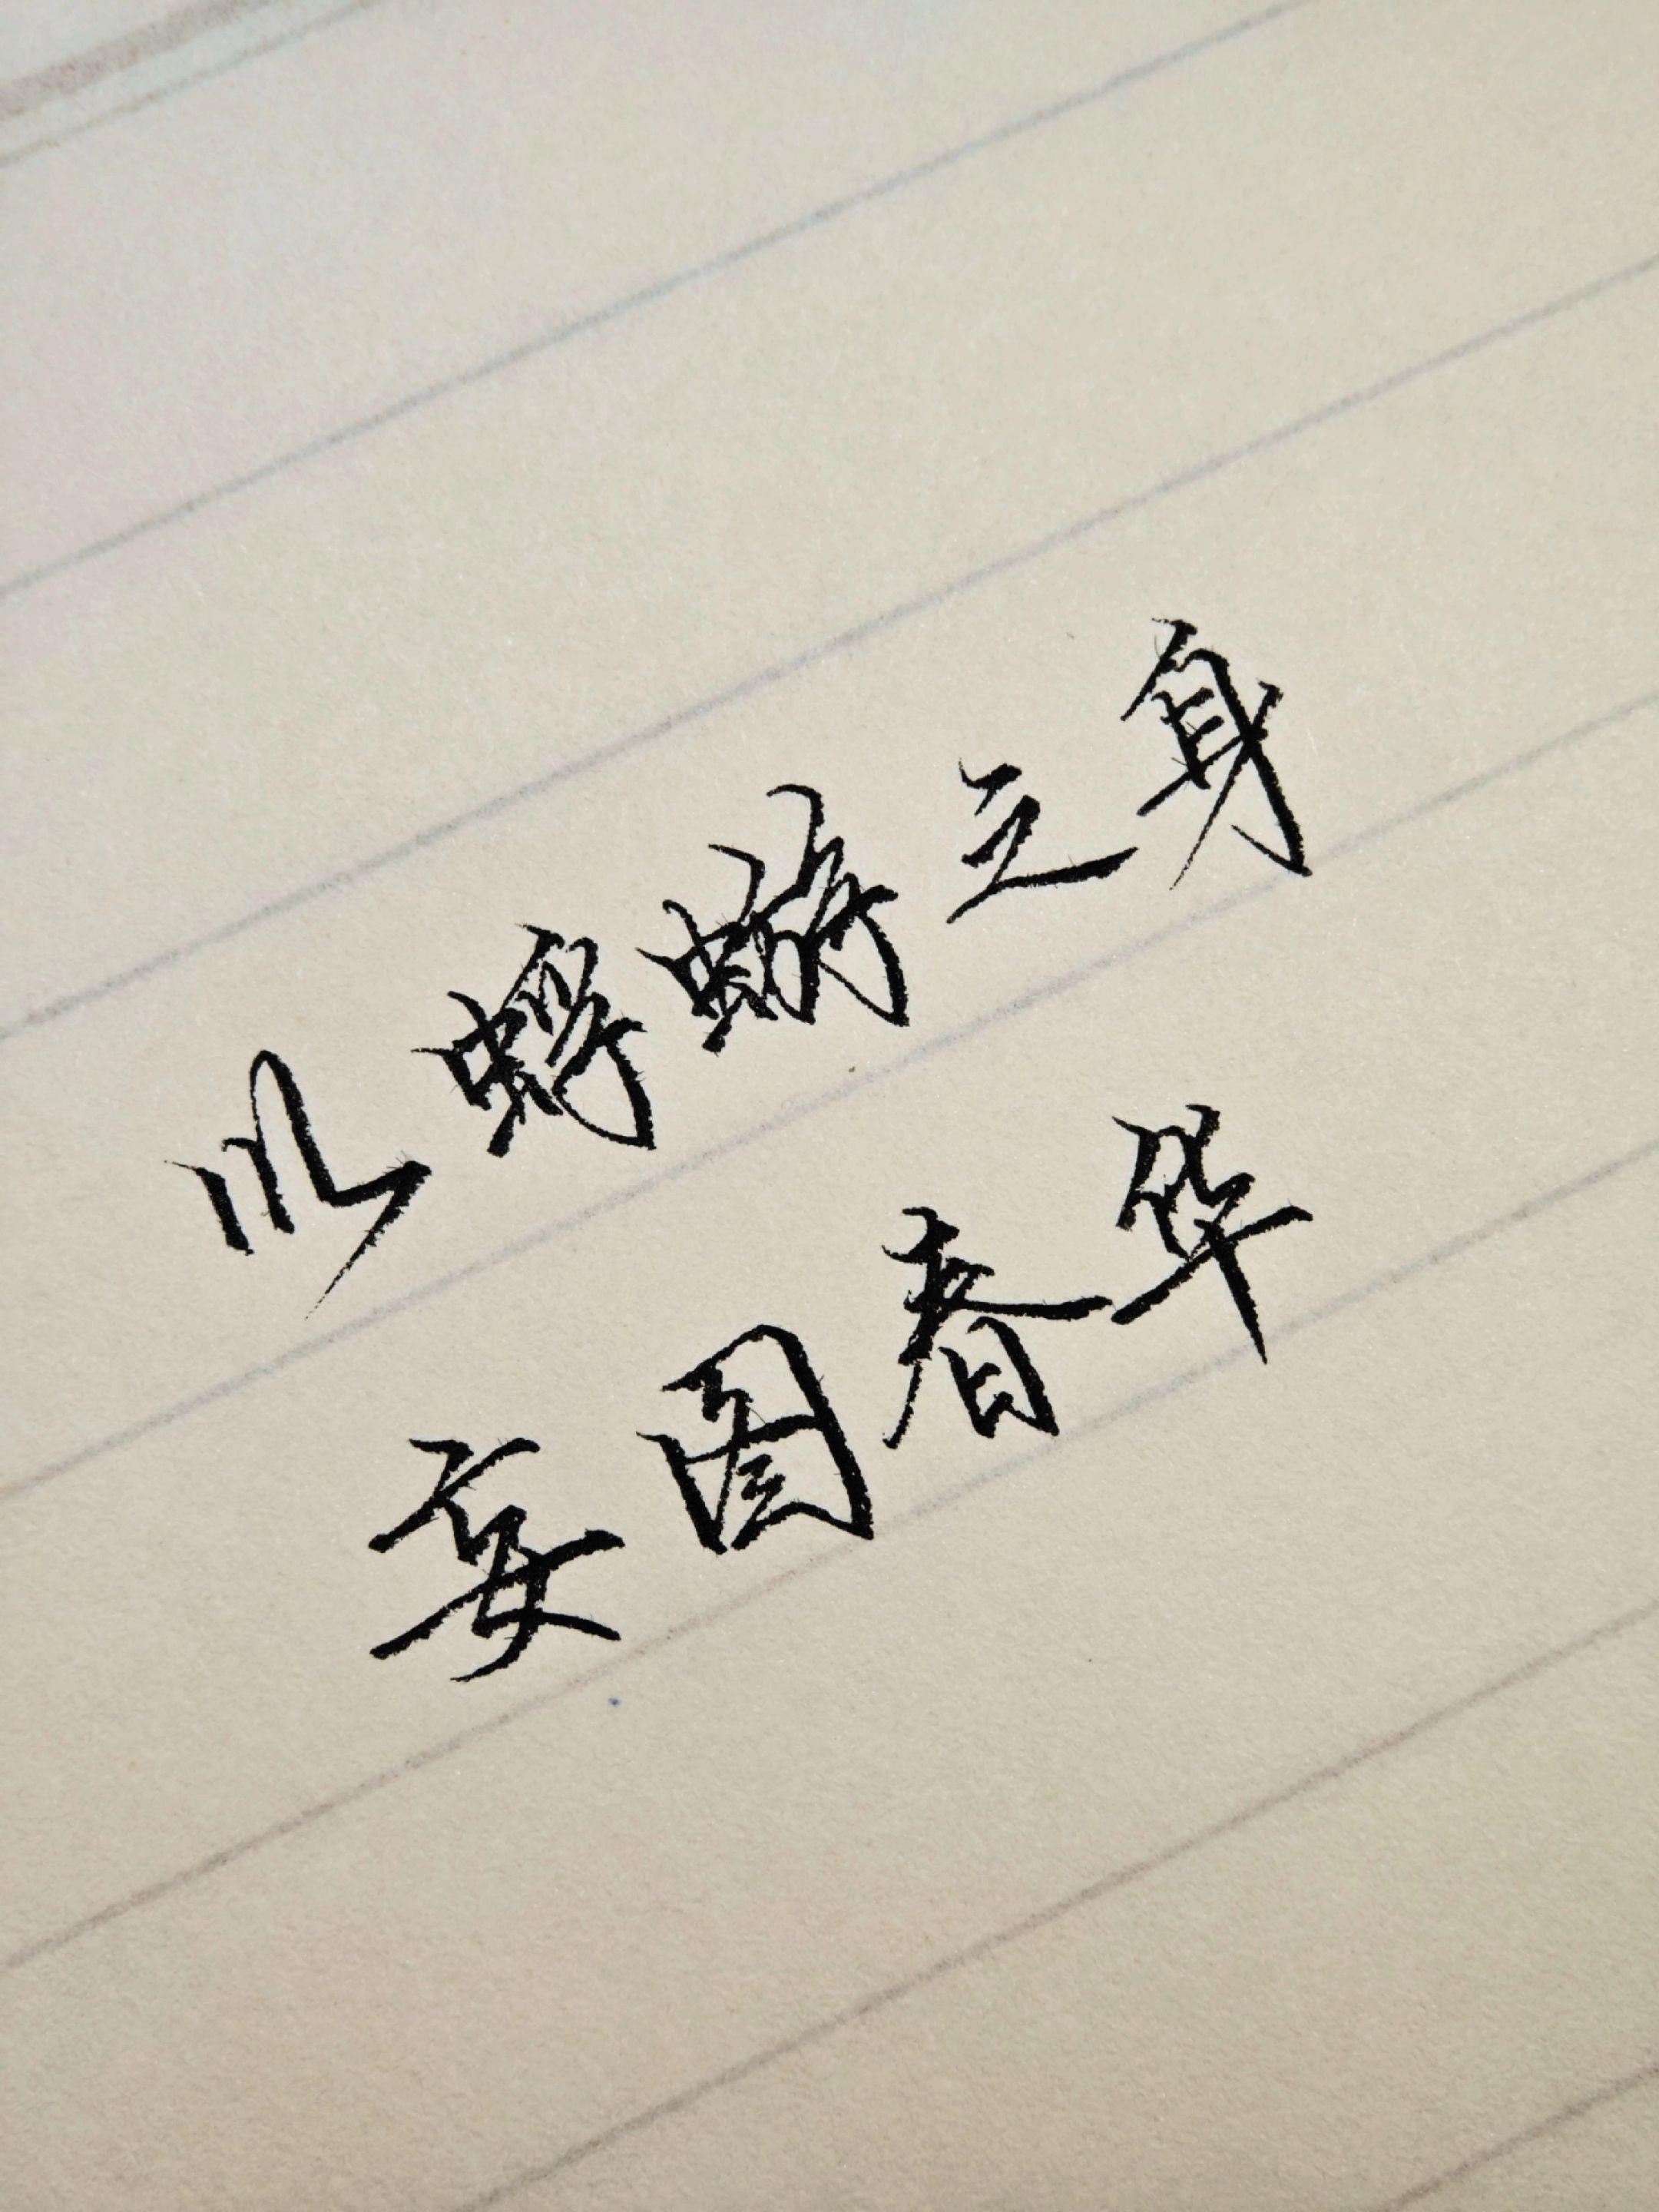 以蜉蝣之身
妄图春华